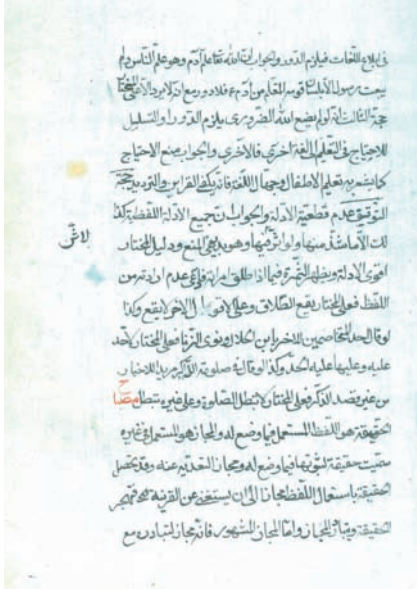 فى ابلاغ اللغات فيلزم الدور والجواب ان الله تعا علم آدم وهو علم الناس ولم
يبعث رسولا الا بلسان قومه المعلم من آدم ع فلا دور مع انه لا يرد الا على المختار
حجة الثالث انه لو لم يضع الله الضرورى يلزم الدور او التسلسل
للاحتياج فى التعلم الى لغة اخرى فالاخرى والجواب منع الاحتياج
كما يشعر به تعليم الاطفال وجهال اللغة فانه يكفى القراين والترديد حجة
التوقيف عدم قطعية الادلة والجواب ان جميع الادلة اللفظية كذا
لك الا ما شذ منها ولو اثر فيها وهو بديهى المنع ودليل المختار
لا غى
اقوى الادلة ويظهر الثمرة فيما اذا طلق امراته فادعى عدم ارادته من
اللفظ فعلى المختار يقع الطلاق وعلى الاقوال الاخر لا يقع وكذا
لو قال احد المتخاصمين للاخر يا بن الحلال ونوى الزنا فعلى المختار لا حد
عليه وعليها عليه الحد وكذا لو قال فى صلوته الله اكبر مريدا للاخبار
من غير قصد الذكر فعلى المختار لا تبطل الصلوة وعلى غيره تبطل
الحقيقة هو اللفظ المستعمل فيما وضع له والمجاز هو المستعمل فى غيره
سميت حقيقة لثبوتها فيما وضع له ومجازا لتعديه عنه وقد يحصل
الحقيقة باستعمال اللفظ مجازا الى ان يستغنى عن القرينة فتهجر
الحقيقة ويتبادر المجاز واما المجاز المشهور فانه مجاز لتبادره مع